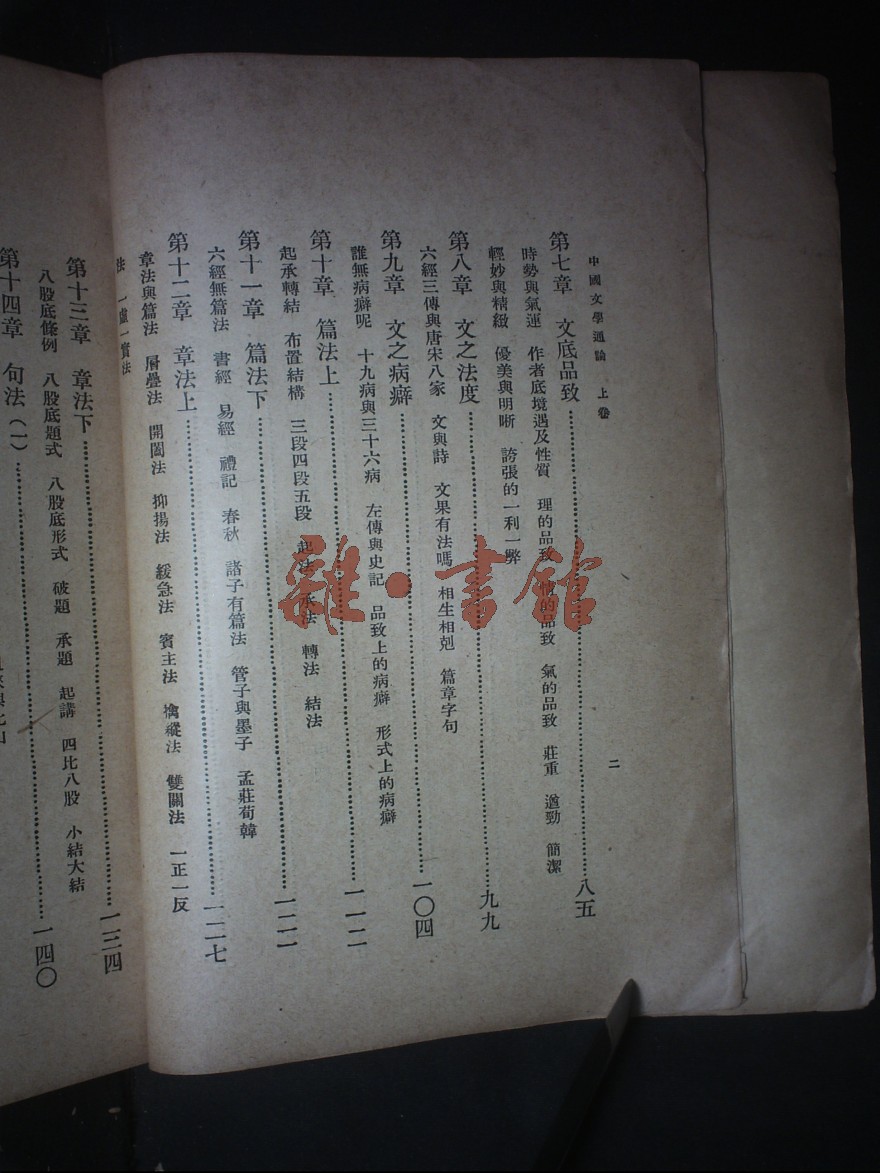 中國文學通論　上卷
二
第七章　文底品致……八五
時勢與氣運　作者底境遇及性質　理的品致　情的品致　氣的品致　莊重　遒勁　簡潔
輕妙與精緻　優美與明晰　誇張的一利一弊
第八章　文之法度……九九
六經三傳與唐宋八家　文與詩　文果有法嗎　相生相剋　篇章字句
第九章　文之病癖……一〇四
誰無病癖呢　十九病與三十六病　左傳與史記　品致上的病癖　形式上的病癖
第十章　篇法上……一一二
起承轉結　布置結構　三段四段五段　起法　承法　轉法　結法
第十一章　篇法下……一二一
六經無篇法　書經　易經　禮記　春秋　諸子有篇法　管子與墨子　孟莊荀韓
第十二章　章法上……一二七
章法與篇法　層疊法　開闔法　抑揚法　緩急法　賓主法　擒縱法　雙關法　一正一反
法　一虛一實法
第十三章　章法下……一三四
八股底條例　八股底題式　八股底形式　破題　承題　起講　四比八股　小結大結
第十四章　句法（一）……一四〇
雜·書館